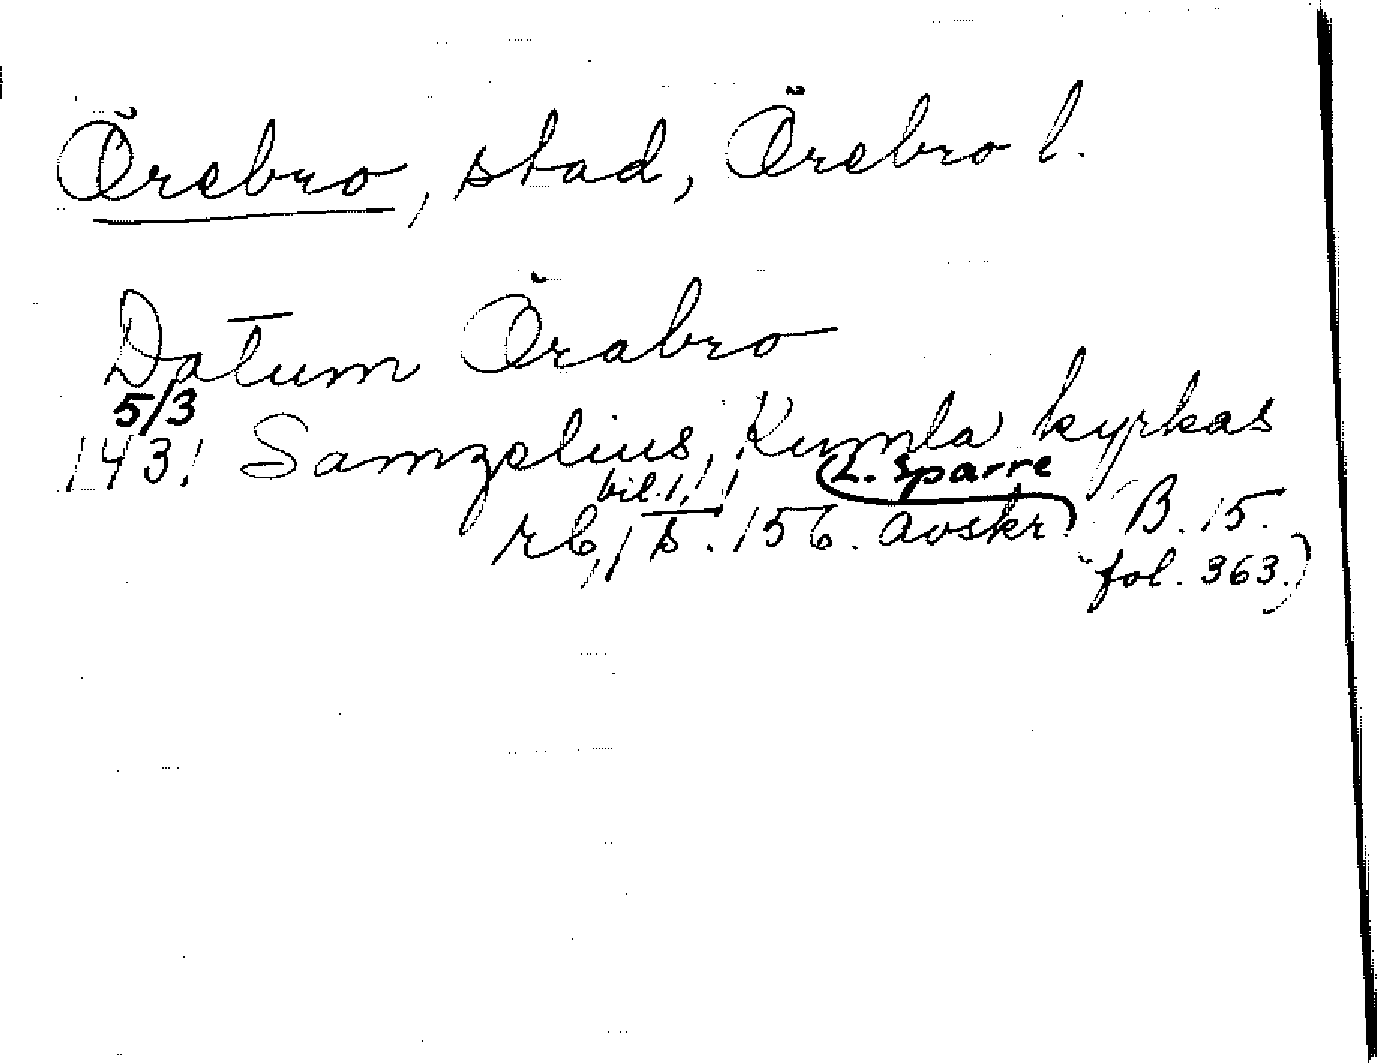 Örebro, stad, Örebro l.
Datum Örabro
5/3
1431 Samzelius, Kumla kyrkas
bil. 1, L. Sparre
rb, s. 156. avskr. B. 15.
fol. 363.)